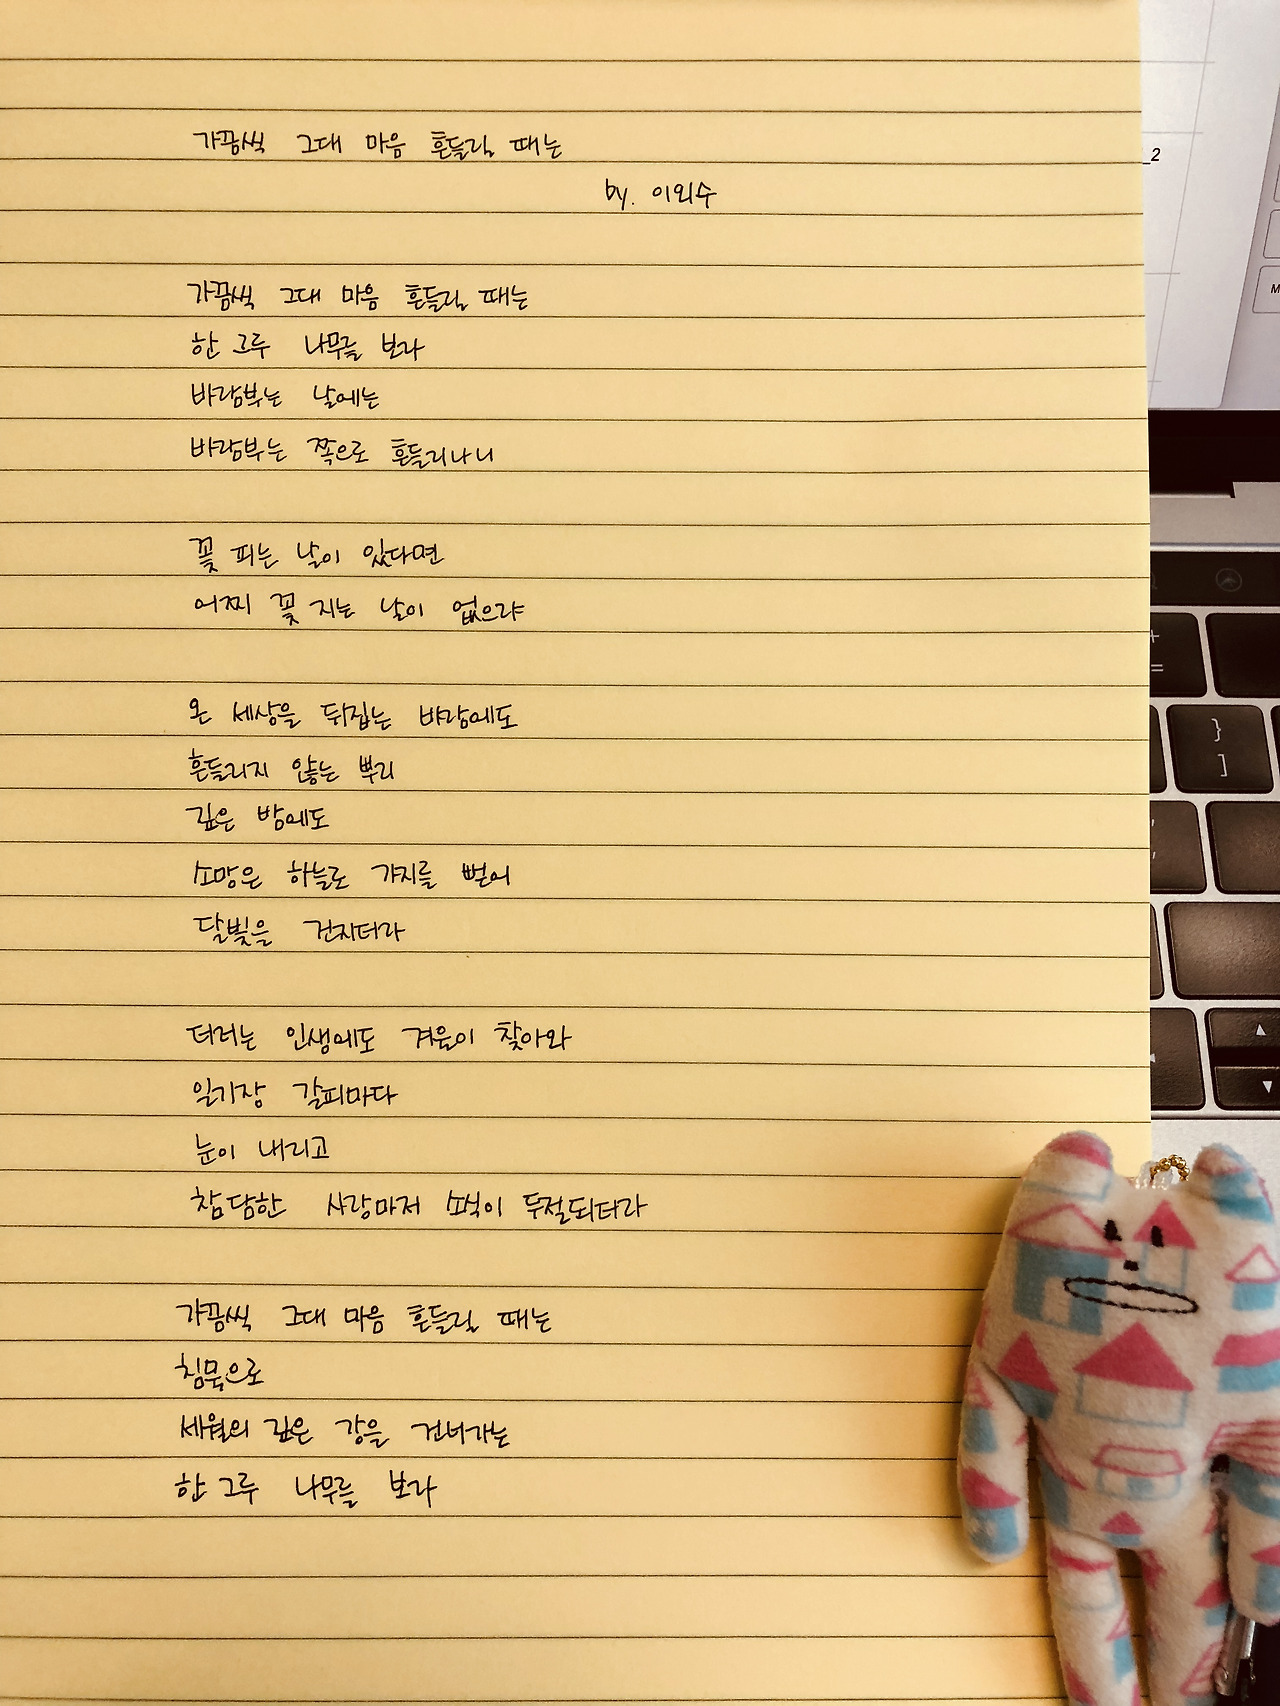 가끔씩 그대 마음 흔들릴 때는
by. 이외수
가끔씩 그대 마음 흔들릴 때는
한 그루 나무를 보라
바람부는 날에는
바람부는 쪽으로 흔들리나니
꽃 피는 날이 있다면
어찌 꽃 지는 날이 없으랴
온 세상을 뒤집는 바람에도
흔들리지 않는 뿌리
깊은 밤에도
소망은 하늘로 가지를 뻗어
달빛을 건지더라
더러는 인생에도 겨울이 찾아와
일기장 갈피마다
눈이 내리고
참담한 사랑마저 소식이 두절되더라
가끔씩 그대 마음 흔들릴 때는
침묵으로
세월의 깊은 강을 건너가는
한 그루 나무를 보라
_2
M
+
=
}
]